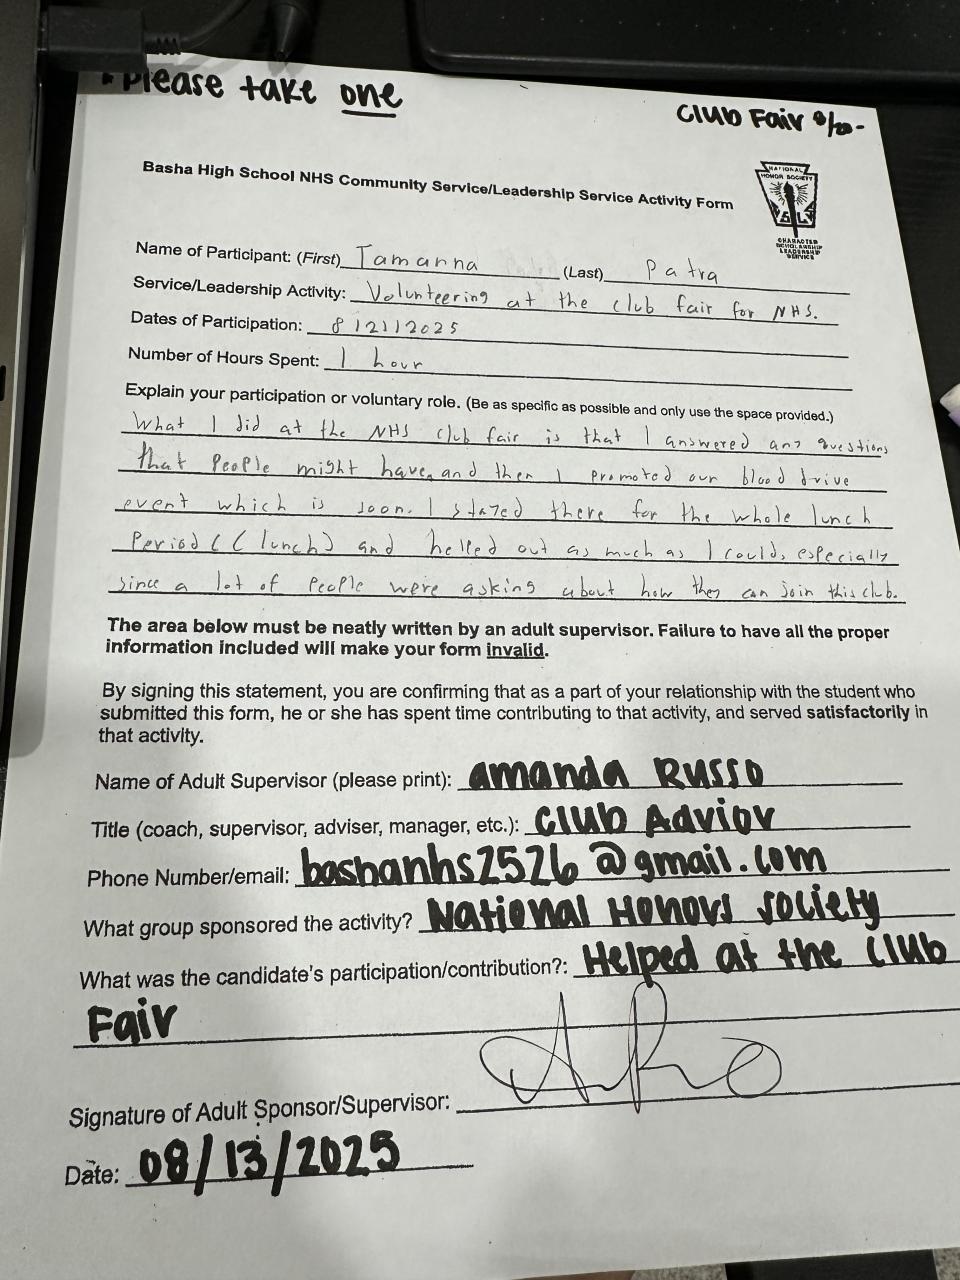 Please take one
Club Fair 8/20-
Basha High School NHS Community Service/Leadership Service Activity Form
NATIONAL
HONOR SOCIETY
CHARACTER
SCHOLARSHIP
LEADERSHIP
SERVICE
Name of Participant: (First) Tamanna (Last) Patra
Service/Leadership Activity: Volunteering at the club fair for NHS.
Dates of Participation: 8/21/2025
Number of Hours Spent: 1 hour
Explain your participation or voluntary role. (Be as specific as possible and only use the space provided.)
What I did at the NHS club fair is that I answered any questions
that people might have, and then I promoted our blood drive
event which is soon. I stayed there for the whole lunch
Period ( lunch) and helped out as much as I could, especially
since a lot of people were asking about how they can join this club.
The area below must be neatly written by an adult supervisor. Failure to have all the proper
information included will make your form invalid.
By signing this statement, you are confirming that as a part of your relationship with the student who
submitted this form, he or she has spent time contributing to that activity, and served satisfactorily in
that activity.
Name of Adult Supervisor (please print): amanda Russo
Title (coach, supervisor, adviser, manager, etc.): Club Advior
Phone Number/email: bashanhs2526@gmail.com
What group sponsored the activity? National Honors society
What was the candidate's participation/contribution?: Helped at the Club
Fair
Signature of Adult Sponsor/Supervisor:
Date: 08/13/2025